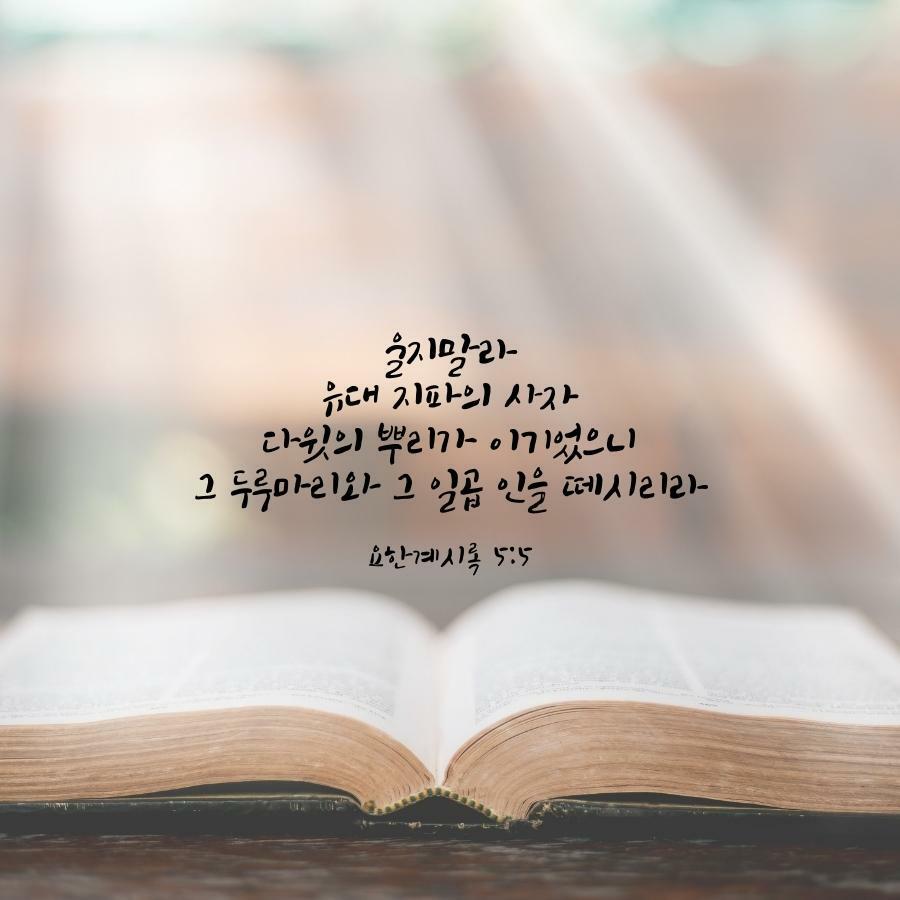 울지말라
유대 지파의 사자
다윗의 뿌리가 이기었으니
그 두루마리와 그 일곱 인을 떼시리라
요한계시록 5:5